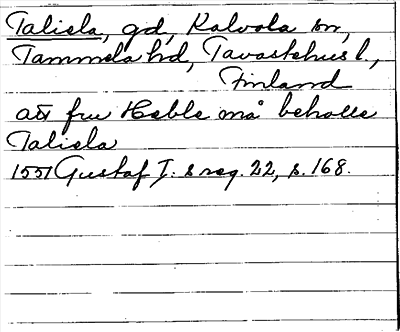 Taliela, gd, Kalvola sn,
Tammela hd, Tavastehus l.,
Finland
att fru Hebla må behålle
Taliela
1551 Gustaf I:s reg. 22, s. 168.